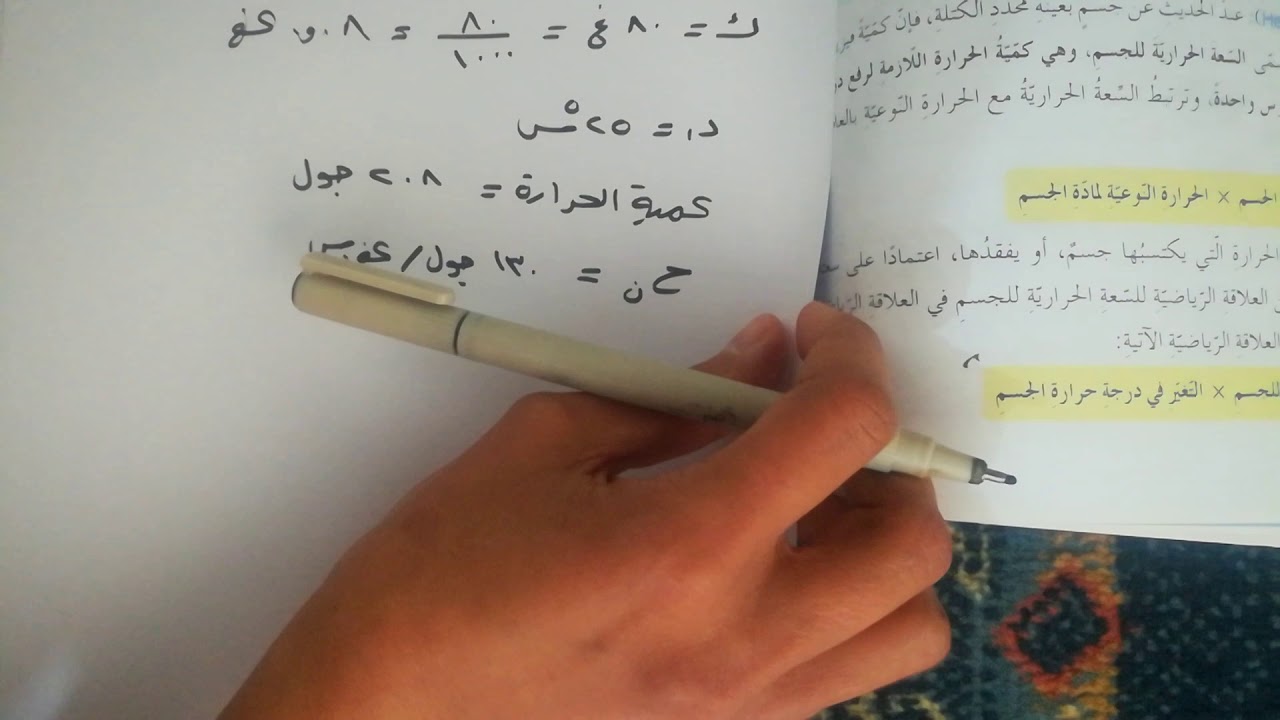 ك = ٨٠ غ = ٨٠/١٠٠٠ = ٠٨,٠ كغ
د١ = ٢٥ °س
كمية الحرارة = ٢٠٨ جول
ح ن = ١٣٠ جول/كغ.س
عندَ الحديث عن جسمٍ بعينِهِ محدّدِ الكتلةِ، فإنّ كمّيّةَ
السّعة الحراريّة للجسم، وهي كمّيّةُ الحرارةِ اللّازمة لرفع
واحدة، وترتبطُ السّعةُ الحراريّةُ مع الحرارةِ النّوعيّة
× الحرارة النّوعيّة لمادّة الجسم
الحرارة الّتي يكتسبُها جسمٌ، أو يفقدُها، اعتمادًا على
العلاقةِ الرّياضيّةِ للسّعةِ الحراريّةِ للجسمِ في العلاقةِ
العلاقةِ الرّياضيّةِ الآتيةِ:
للجسم × التغيّر في درجةِ حرارةِ الجسمِ